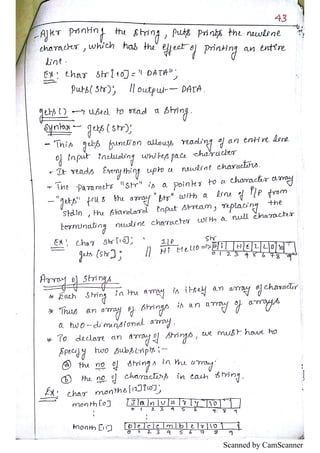 43
- After printing the string, puts prints the newline
character, which has the effect of printing an entire
line.
Ex: char str[10] = "DATA";
puts(str); // output — DATA.
gets() → used to read a string.
Syntax — gets(str);
- This gets function allows reading of an entire line
of Input including whitespace character
- It reads Everything upto a newline character.
- The Parameter "str" is a pointer to a character array
- "gets" fills the array "str" with a line of I/P from
stdin, the standard input stream, replacing the
terminating newline character with a null character
Ex: char str[10]; I/P Str
gets (str); // HI Hello ⇒ H I H E L L O \0
0 1 2 3 4 5 6 7 8 9
Array of Strings
* Each string in the array is itself an array of character
* Thus an array of strings is an array of arrays
a two-dimensional array.
* To declare an array of strings, we must have to
specify two subscripts:-
(a) the no of strings in the array
(b) the no of characters in each string.
Ex: char months[12][10];
month[0] J a n u a r y \0
0 1 2 3 4 5 6 7 8 9
month[11] D e c e m b e r \0
0 1 2 3 4 5 6 7 8 9
Scanned by CamScanner